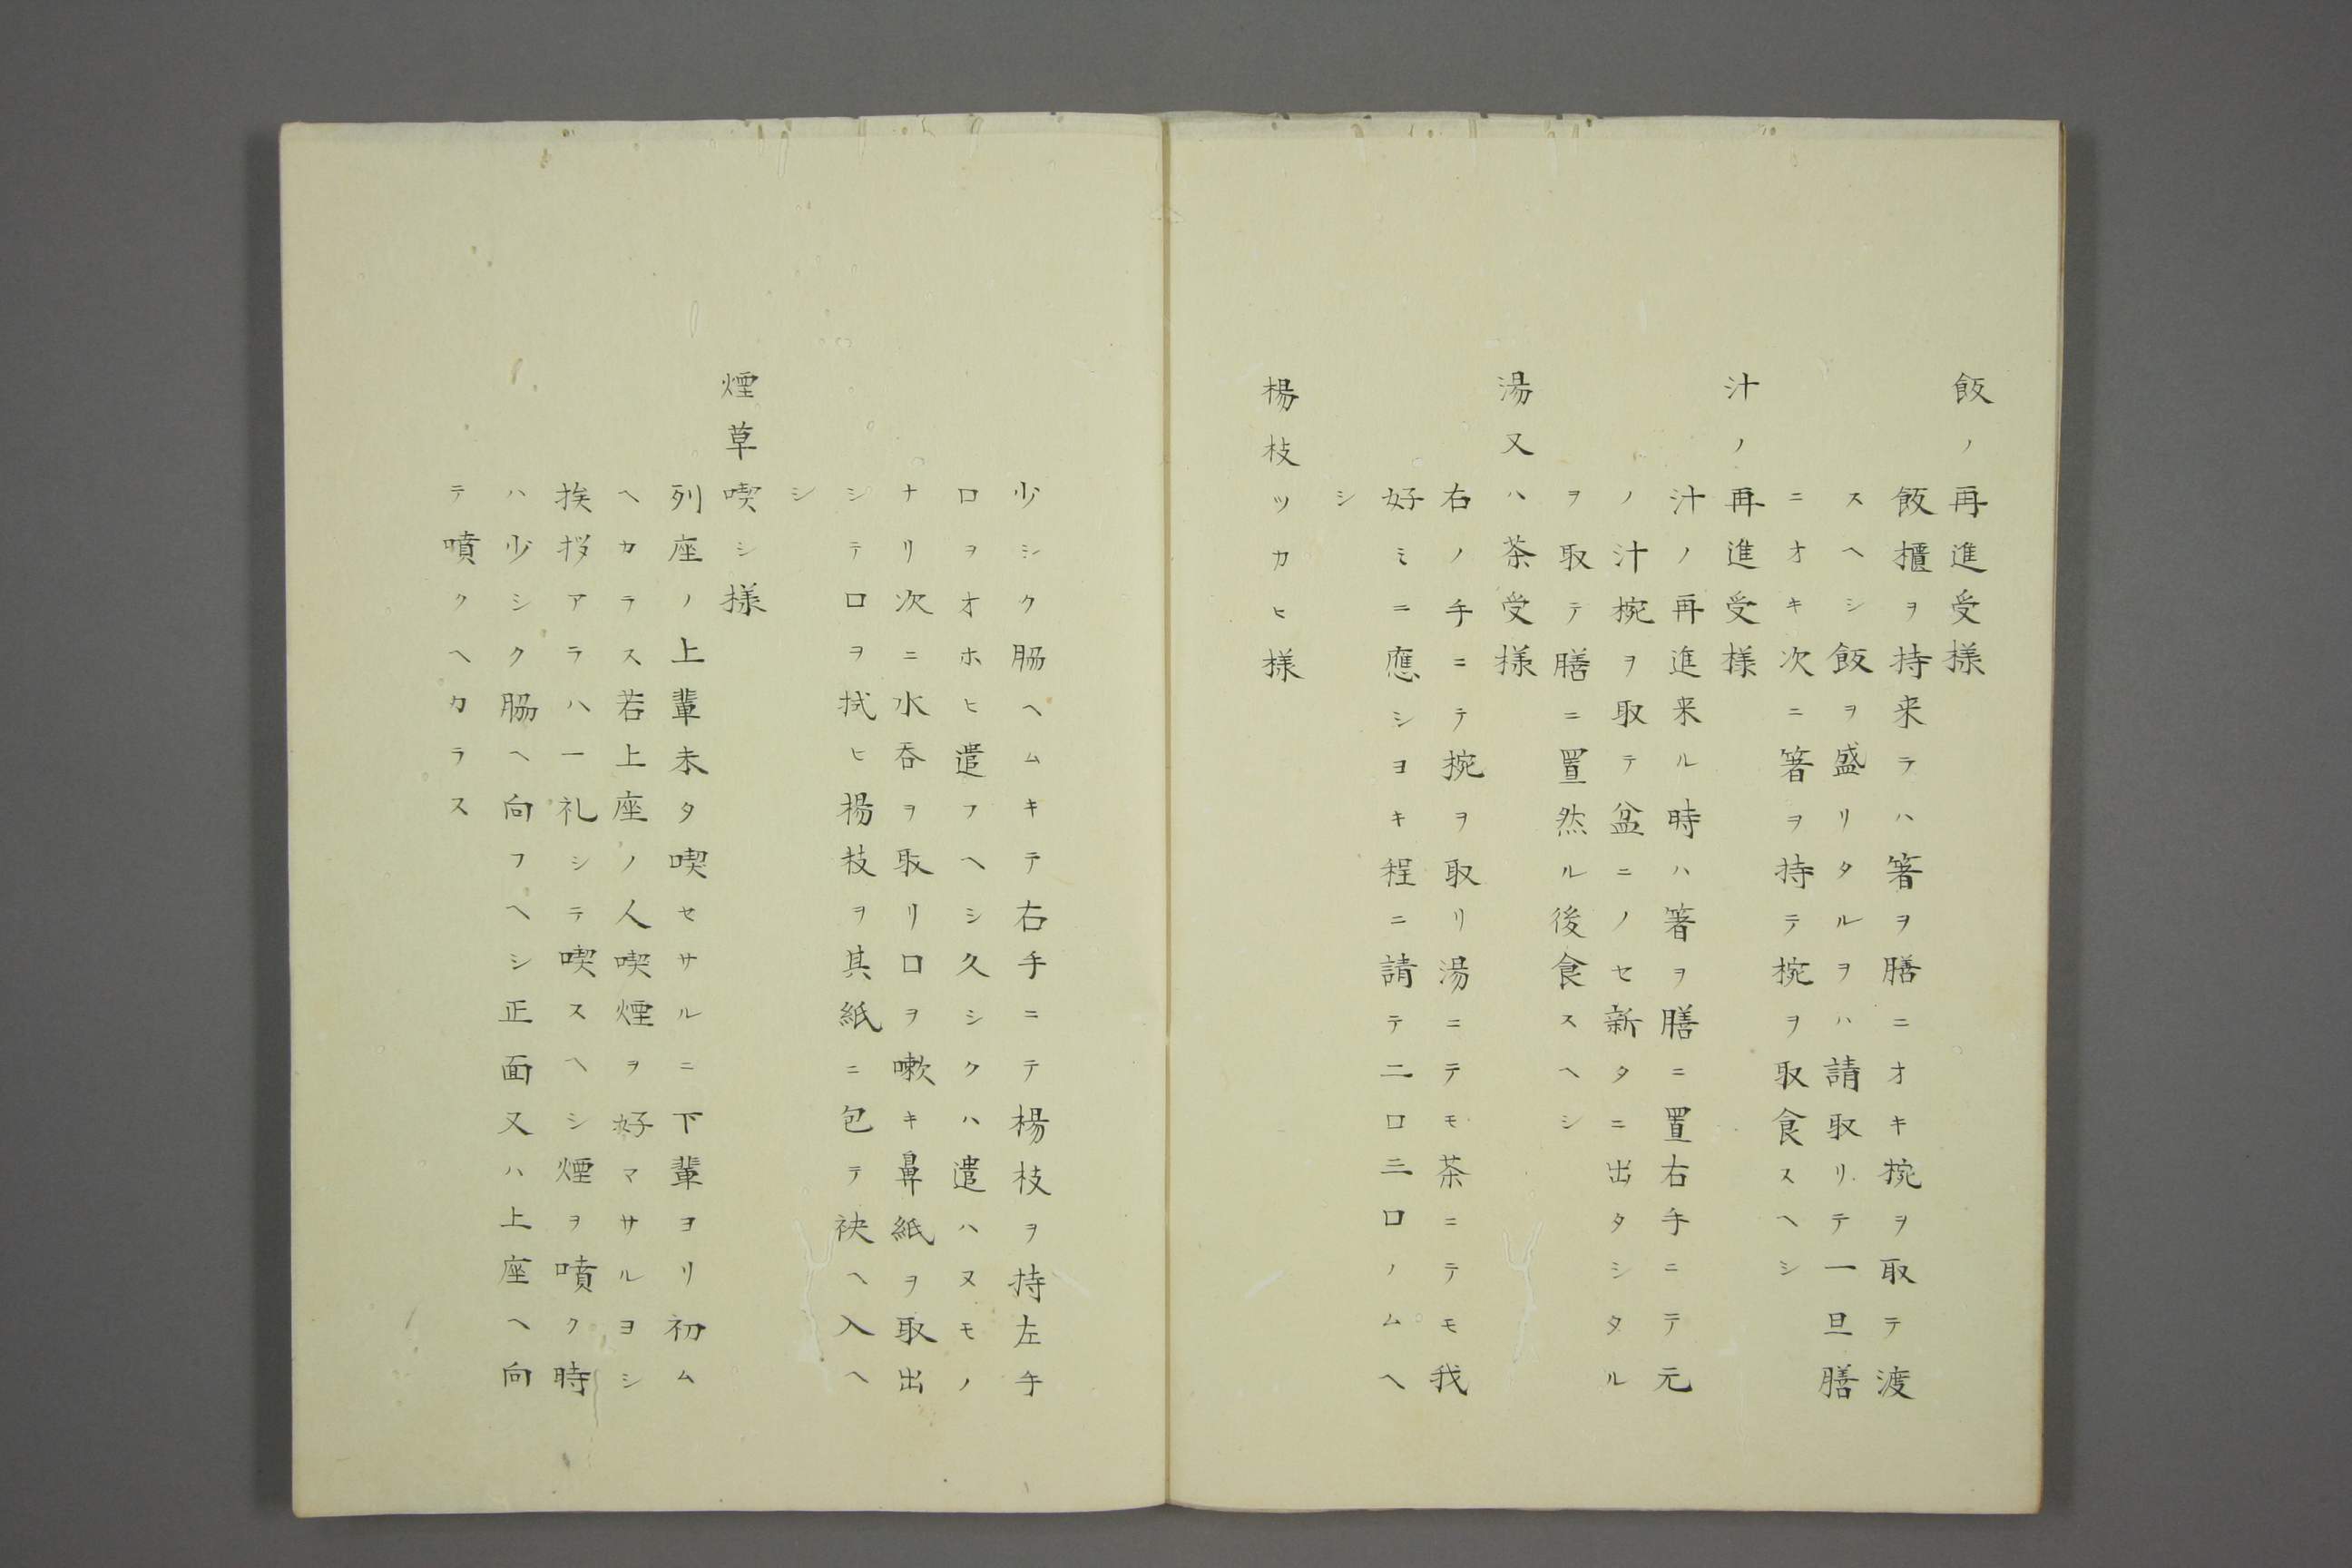 飯ノ再進受様
飯櫃ヲ持来ラハ箸ヲ膳ニオキ椀ヲ取テ渡
スヘシ飯ヲ盛リタルヲハ請取リテ一旦膳
ニオキ次ニ箸ヲ持テ椀ヲ取食スヘシ
汁ノ再進受様
汁ノ再進来ル時ハ箸ヲ膳ニ置右手ニテ元
ノ汁椀ヲ取テ盆ニノセ新タニ出タシタル
ヲ取テ膳ニ置然ル後食スヘシ
湯又ハ茶受様
右ノ手ニテ椀ヲ取リ湯ニテモ茶ニテモ我
好ミニ應シヨキ程ニ請テ二口三口ノムヘ
シ
楊枝ツカヒ様
少シク脇ヘムキテ右手ニテ楊枝ヲ持左手
口ヲオホヒ遣フヘシ久シクハ遣ハヌモノ
ナリ次ニ水呑ヲ取リ口ヲ嗽キ鼻紙ヲ取出
シテ口ヲ拭ヒ楊枝ヲ其紙ニ包テ袂ヘ入ヘ
シ
煙草喫シ様
列座ノ上輩未タ喫セサルニ下輩ヨリ初ム
ヘカラス若上座ノ人喫煙ヲ好マサルヨシ
挨拶アラハ一礼シテ喫スヘシ煙ヲ噴ク時
ハ少シク脇ヘ向フヘシ正面又ハ上座ヘ向
テ噴クヘカラス